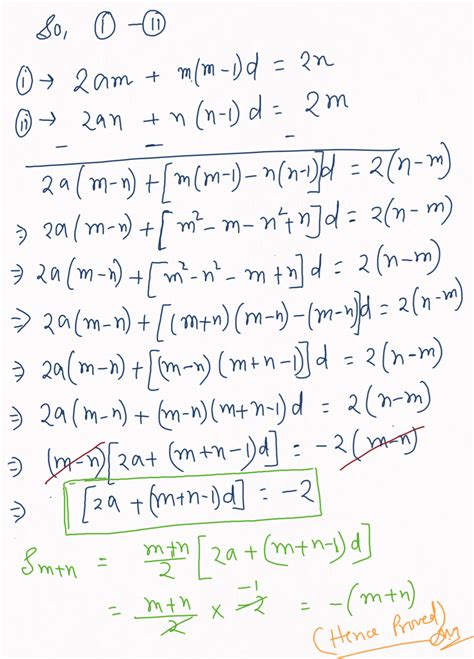 So, (i) - (ii)
(i) → 2am + m(m-1)d = 2n
(ii) → 2an + n(n-1)d = 2m
- - -
2a(m-n) + [m(m-1) - n(n-1)]d = 2(n-m)
⇒ 2a(m-n) + [m² - m - n² + n]d = 2(n-m)
⇒ 2a(m-n) + [m² - n² - m + n]d = 2(n-m)
⇒ 2a(m-n) + [(m+n)(m-n) - (m-n)]d = 2(n-m)
⇒ 2a(m-n) + [(m-n)(m+n-1)]d = 2(n-m)
⇒ 2a(m-n) + (m-n)(m+n-1)d = 2(n-m)
⇒ (m-n)[2a + (m+n-1)d] = -2(m-n)
⇒ [2a + (m+n-1)d] = -2
S_{m+n} = \frac{m+n}{2} [2a + (m+n-1)d]
= \frac{m+n}{2} × -2 -1 = -(m+n)
(Hence Proved)